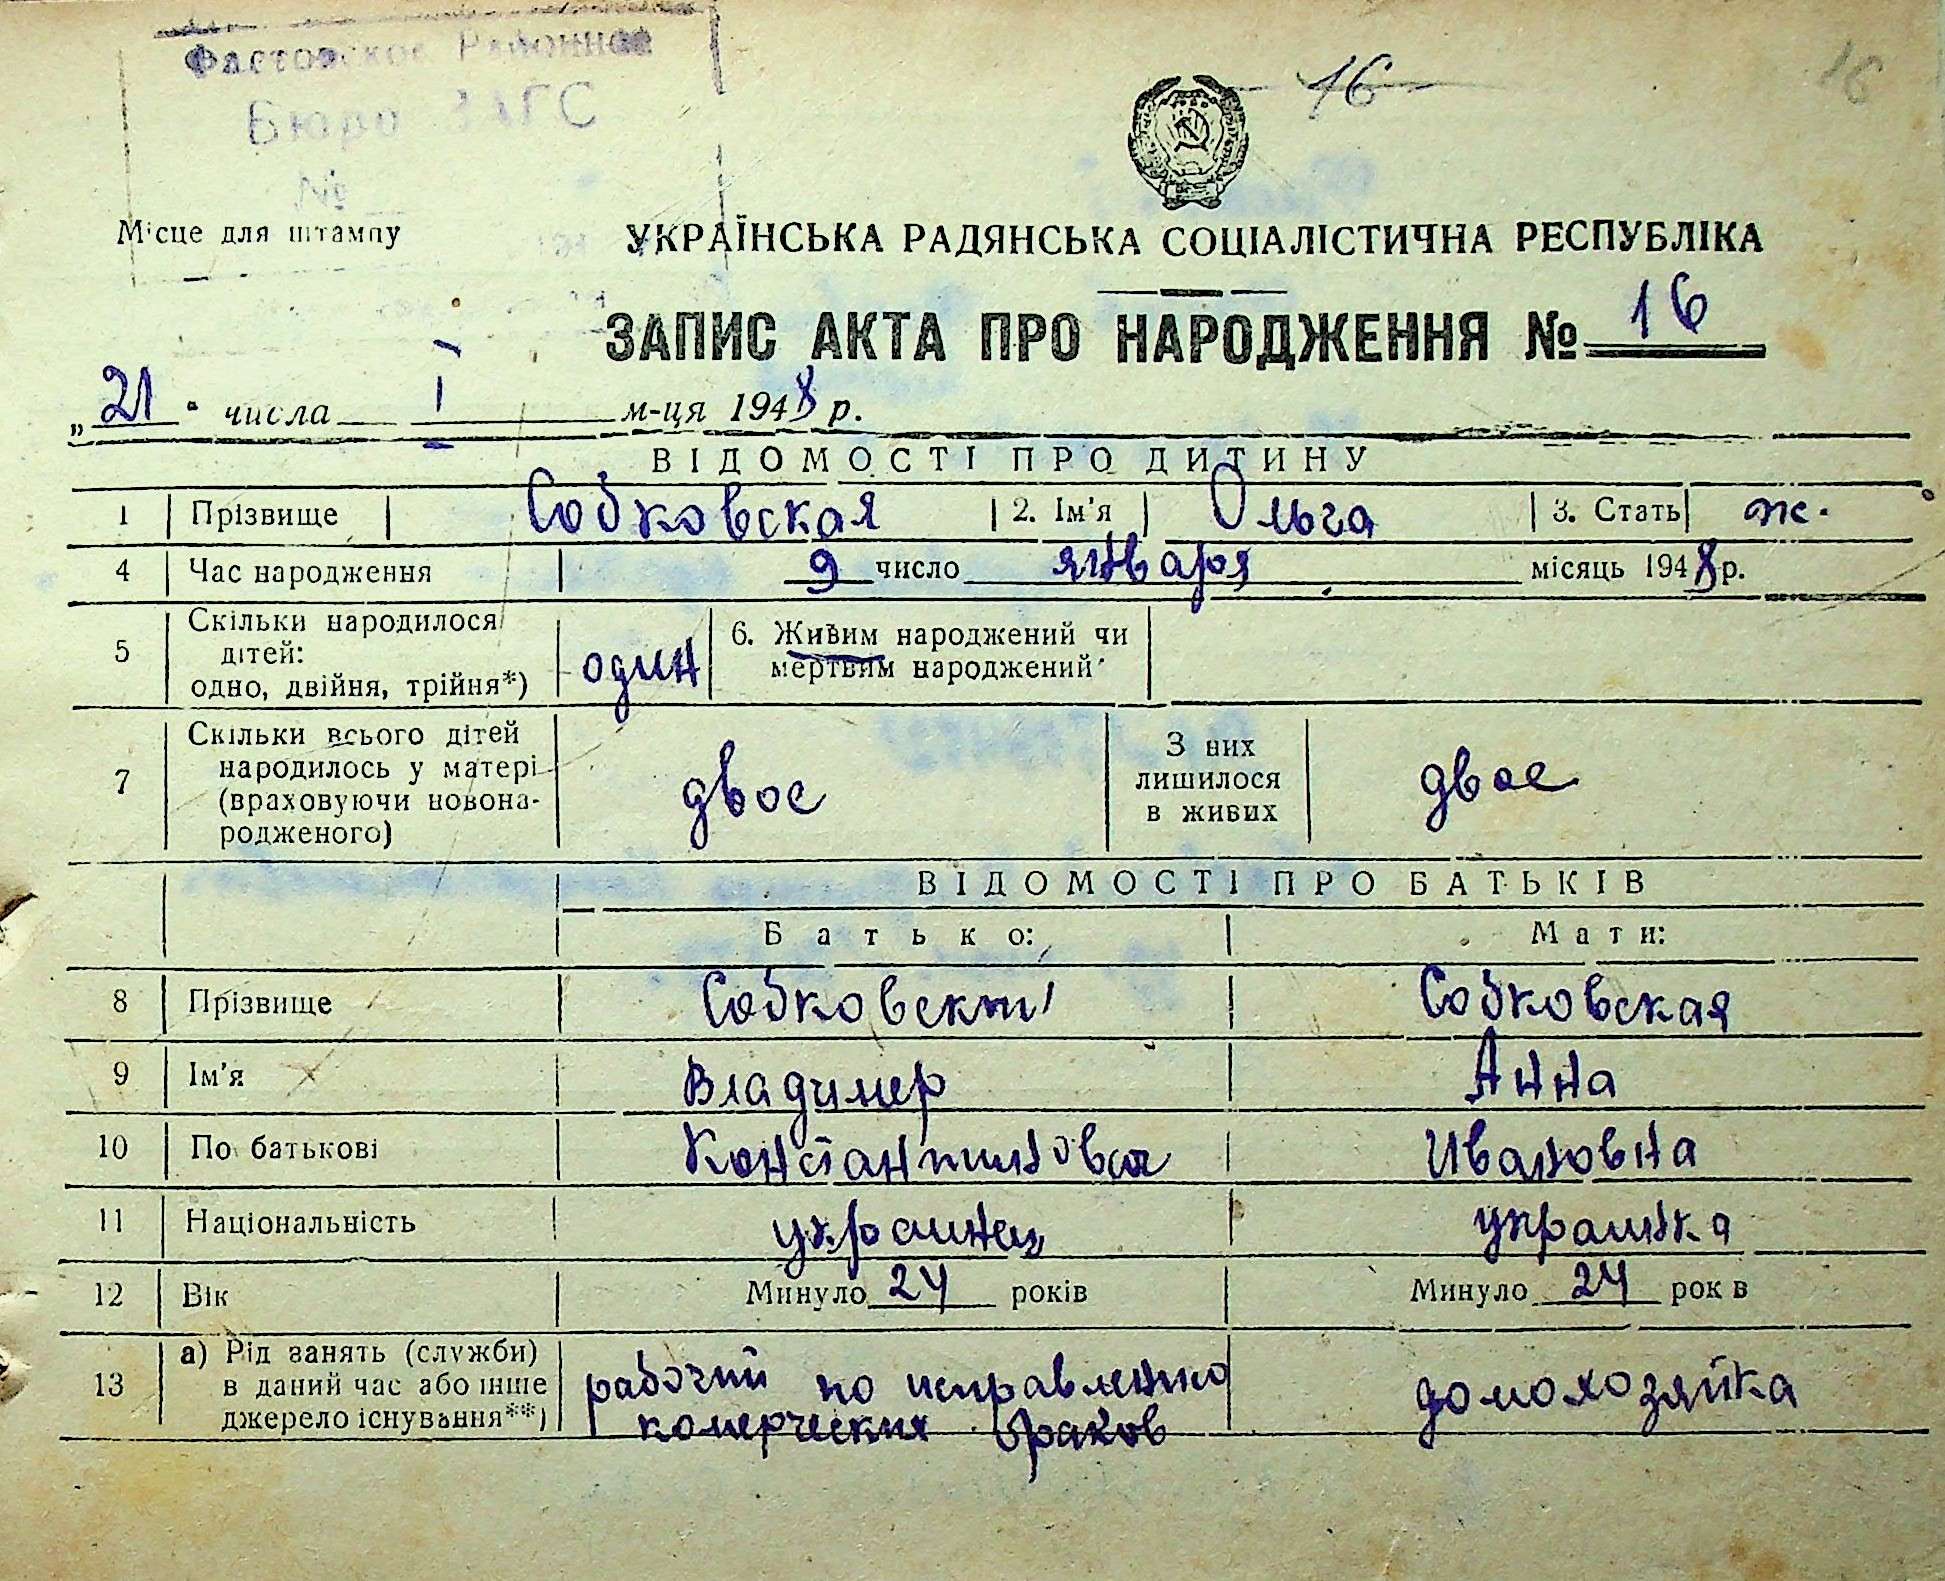 Фастовское Районное
Бюро ЗАГС
№
16
16
Місце для штампу
УКРАЇНСЬКА РАДЯНСЬКА СОЦІАЛІСТИЧНА РЕСПУБЛІКА
ЗАПИС АКТА ПРО НАРОДЖЕННЯ № 16
„21" числа I м-ця 1948 р.
ВІДОМОСТІ ПРО ДИТИНУ
1 Прізвище Собковская 2. Ім'я Ольга 3. Стать ж.
4 Час народження 9 число января місяць 1948 р.
5 Скільки народилося дітей: одно, двійня, трійня*) один 6. Живим народжений чи мертвим народжений
7 Скільки всього дітей народилось у матері (враховуючи новонародженого) двое З них лишилося в живих двое
ВІДОМОСТІ ПРО БАТЬКІВ
Батько: Мати:
8 Прізвище Собковский Собковская
9 Ім'я Владимер Анна
10 По батькові Константинович Ивановна
11 Національність украинец украинка
12 Вік Минуло 24 років Минуло 24 рок в
13 а) Рід занять (служби) в даний час або інше джерело існування**) рабочий по исправлению комерческих браков домохозяйка